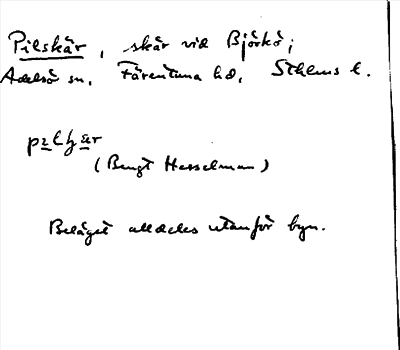 Pilskär, skär vid Björkö;
Adelsö sn, Färentuna hd, Sthlms l.
(Bengt Hesselman)
Beläget alldeles utanför byn.